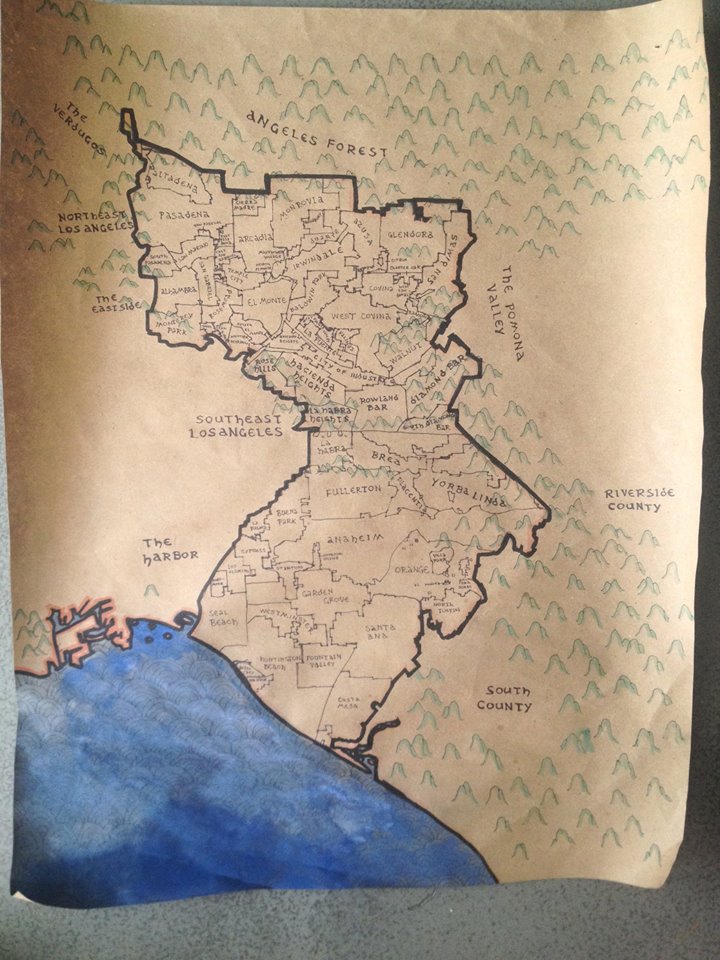 THE
VERDUGOS
ANGELES FOREST
ALTADENA
NORTHEAST
LOS ANGELES
PASADENA
SIERRA
MADRE
MONROVIA
ARCADIA
DUARTE
AZUSA
GLENDORA
SAN DIMAS
SOUTH
PASADENA
SAN MARINO
IRWINDALE
TEMPLE
CITY
COVINA
THE POMONA
VALLEY
THE
EASTSIDE
ALHAMBRA
EL MONTE
BALDWIN PARK
WEST COVINA
MONTEREY
PARK
LA PUENTE
WALNUT
ROSE
HILLS
HACIENDA
HEIGHTS
CITY OF INDUSTRY
DIAMOND BAR
ROWLAND
BAR
SOUTHEAST
LOS ANGELES
LA HABRA
HEIGHTS
LA
HABRA
BREA
FULLERTON
PLACENTIA
YORBA LINDA
RIVERSIDE
COUNTY
BUENA
PARK
THE
HARBOR
ANAHEIM
CYPRESS
ORANGE
VILLA
PARK
GARDEN
GROVE
NORTH
TUSTIN
SEAL
BEACH
WESTMINSTER
SANTA
ANA
HUNTINGTON
BEACH
FOUNTAIN
VALLEY
COSTA
MESA
SOUTH
COUNTY